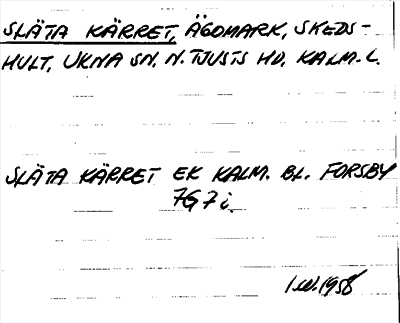 SLÄTA KÄRRET, ÄGOMARK, SKEDS-
HULT, UKNA SN. N. TJUSTS HD. KALM. L.
SLÄTA KÄRRET EK KALM. BL. FORSBY
7G7i.
1958